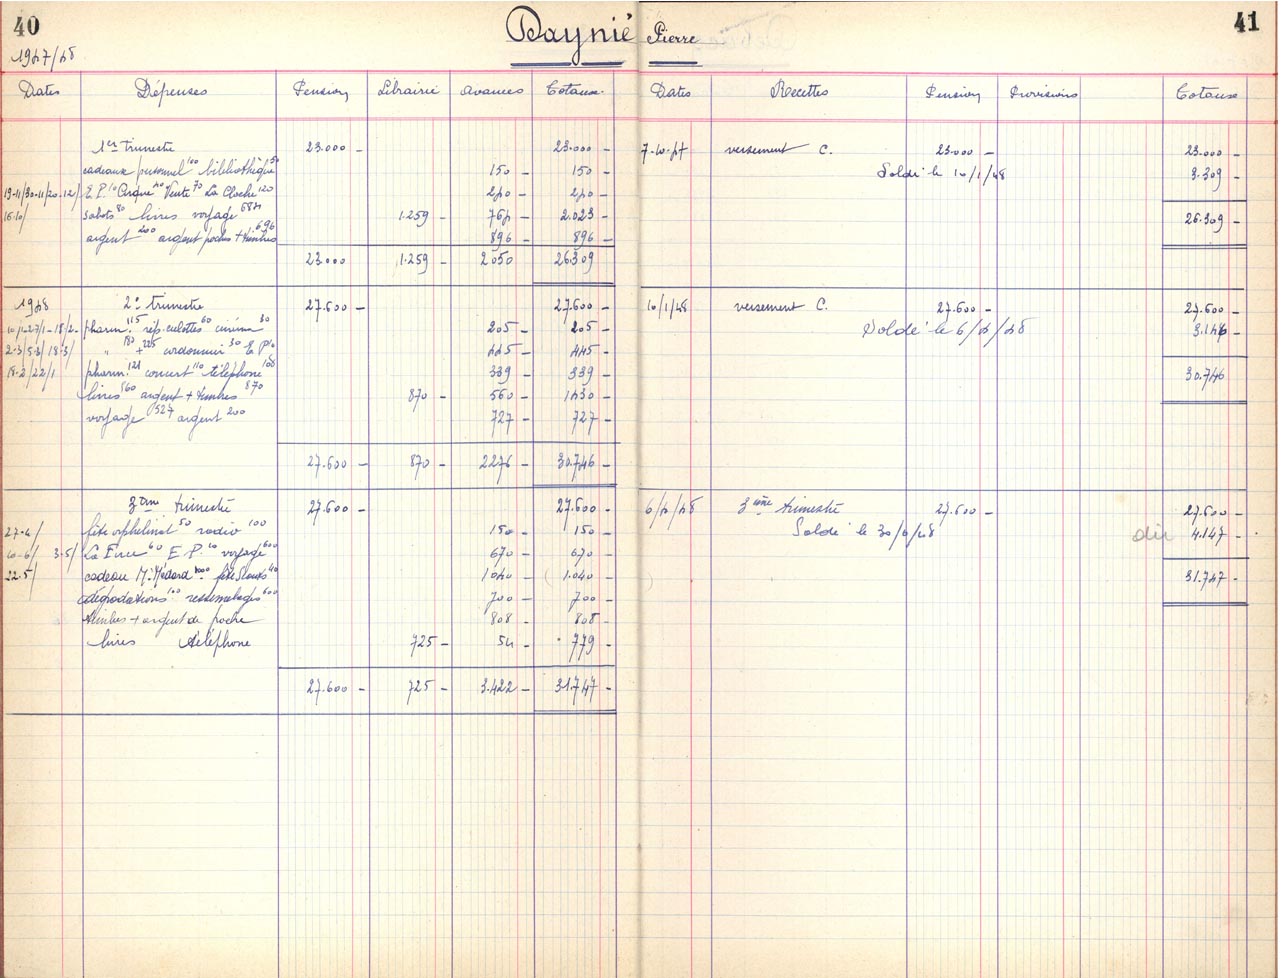 40
1947/48
Daynié Pierre
41
Dates Dépenses Pension Librairie Avances Totaux
Dates Recettes Pension Provisions Totaux
1er trimestre 23.000 - 23.000 -
cadeaux personnel 100 bibliothèque 50 150 - 150 -
19-11/30-11/20-12/ E.P. 10 Cirque 40 Vente 70 La Cloche 120 240 - 240 -
16.10/ sabots 80 livres voyage 684 1.259 - 764 - 2.023 -
argent 200 argent poche + timbres 696 896 - 896 -
23.000 1.259 - 2050 26309
7-10-47 versement C. 23.000 - 23.000 -
Soldé le 10/1/48 3.309 -
26.309 -
1948 2e trimestre 27.600 - 27.600 -
10/1-27/1-18/2- pharm. 115 rép. culottes 60 cinéma 30 205 - 205 -
2-3/5-3/18-3/ " 180 + 225 cordonnier 30 E.P. 10 445 - 445 -
18-2/22/1 pharm. 121 concert 110 téléphone 108 339 - 339 -
livres 560 argent + timbres 870 870 - 560 - 1430 -
voyage 527 argent 200 727 - 727 -
27.600 - 870 - 2276 - 30.746 -
10/1/48 versement C. 27.600 - 27.600 -
Soldé le 6/4/48 3.146 -
30.746
3ème trimestre 27.600 - 27.600 -
27-4/ fête orphelinat 50 radio 100 150 - 150 -
10-6/ 3-5/ La Force 60 E.P. 10 voyage 600 670 - 670 -
22.5/ cadeau M. Médard 1000 fête Scouts 40 1040 - 1.040 -
dégradations 100 ressemelages 600 700 - 700 -
timbres + argent de poche 808 - 808 -
livres téléphone 725 - 54 - 779 -
27.600 - 725 - 3.422 - 31.747 -
6/4/48 3ème trimestre 27.600 - 27.600 -
Soldé le 30/6/48 dû 4.147 -
31.747 -